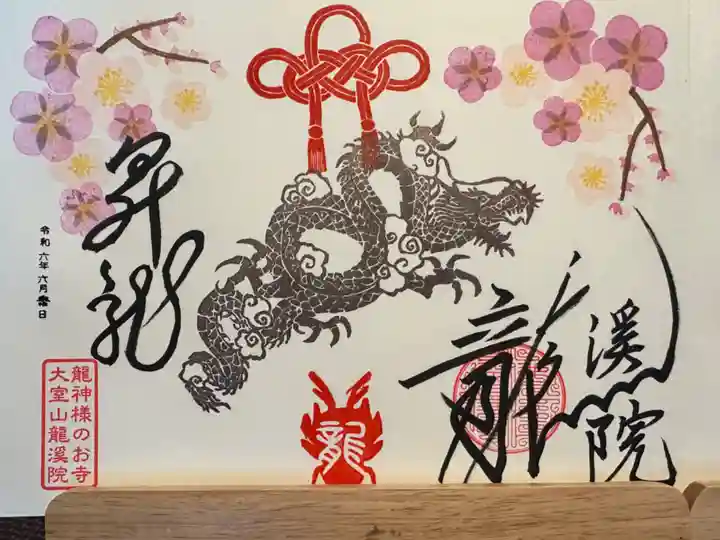 昇龍
令和六年六月吉日
龍神様のお寺
大室山龍溪院
龍
龍溪院